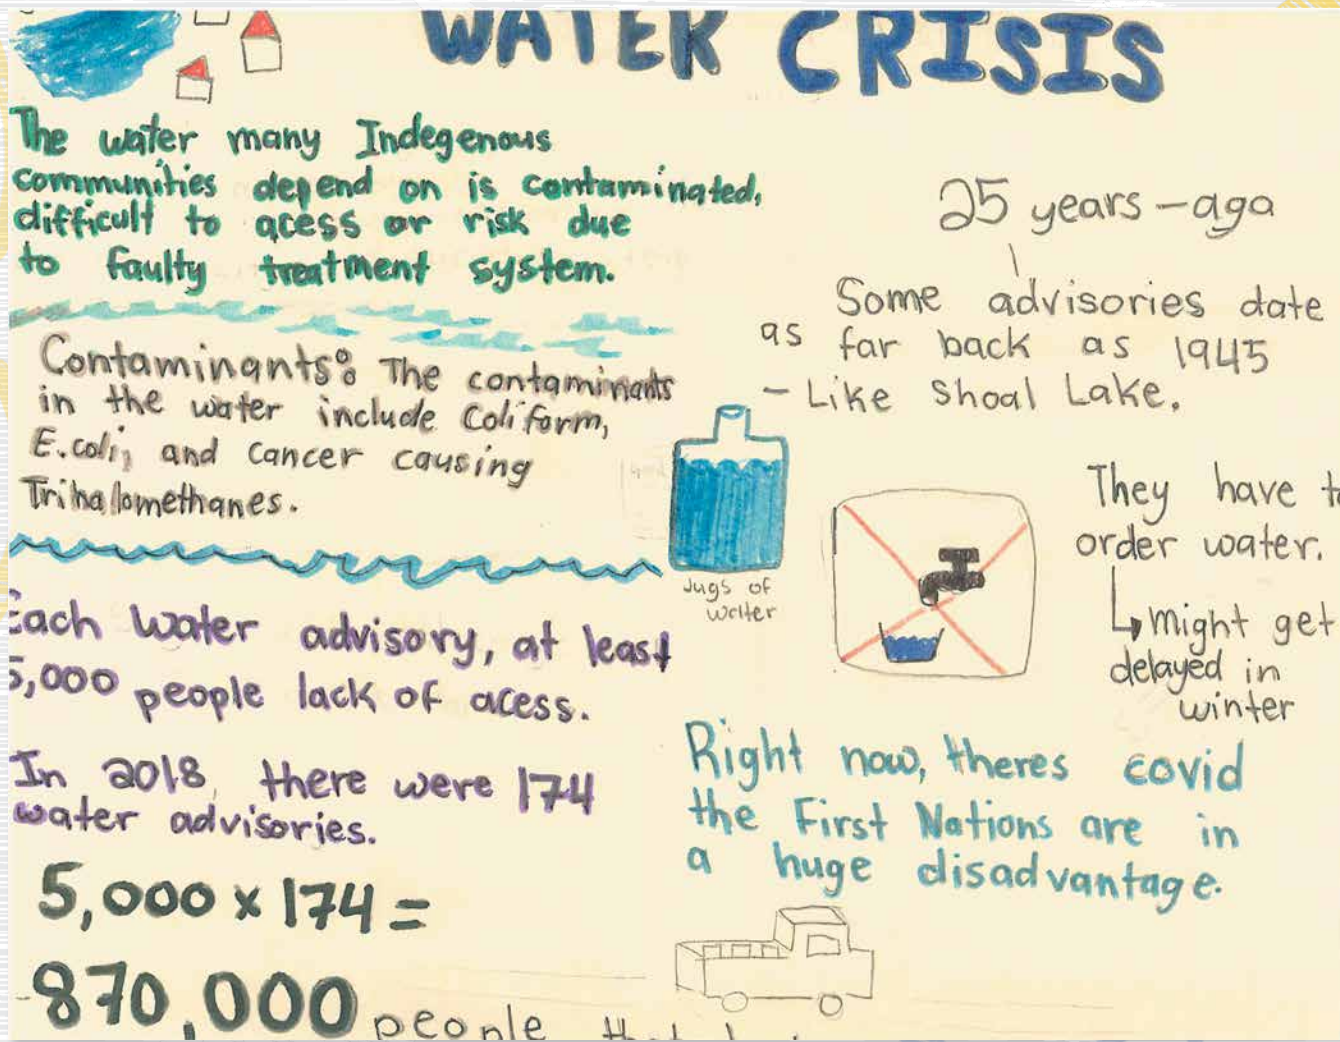 WATER CRISIS
The water many Indegenous
communities depend on is contaminated,
difficult to acess or risk due
to faulty treatment system.
Contaminants: The contaminants
in the water include Coliform,
E.coli, and cancer causing
Trihalomethanes.
Each Water advisory, at least
5,000 people lack of acess.
In 2018, there were 174
water advisories.
5,000 x 174 =
870,000 people that
25 years - aga
Some advisories date
as far back as 1945
- Like Shoal Lake.
Jugs of
water
They have to
order water.
might get
delayed in
winter
Right now, theres covid
the First Nations are in
a huge disadvantage.